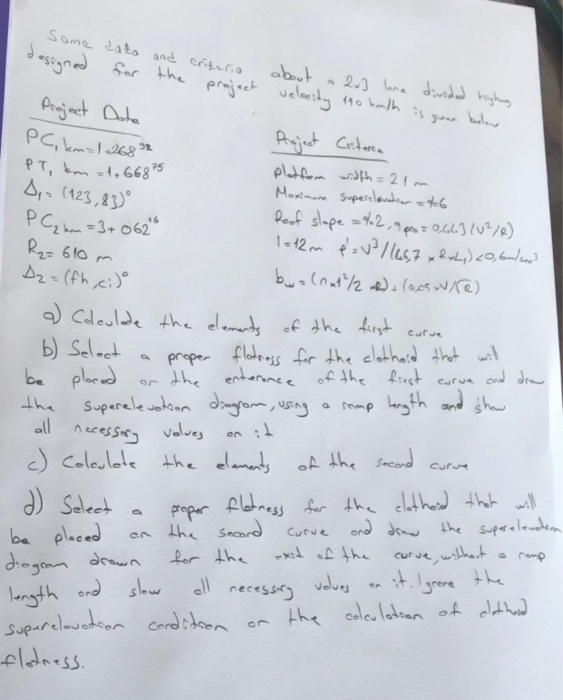 Some data and criteria about a 2x3 lane divided highway
designed for the project velocity 110 km/h is given below
Project Data
PC1 km=1+268 32
PT1 km=1+668 75
Δ1= (123,83)°
PC2 km=3+062 16
R2= 610 m
Δ2= (fh,ci)°
Project Criteria
Platform width = 21 m
Maximum superelevation = %6
Roof slope = %2, q pro = 0,443 (V²/R)
l=12m p'= V³/(46,7 x R x L1) <0,6m/sn³
bw= (n x l²/2 R) + (0,05 x V/√R)
a) Calculate the elements of the first curve
b) Select a proper flatness for the clothoid that will
be placed on the enterance of the first curve and draw
the superelevation diagram, using a ramp length and show
all necessary values on it
c) Calculate the elements of the second curve
d) Select a proper flatness for the clothoid that will
be placed on the second curve and draw the superelevation
diagram drawn for the exit of the curve, without a ramp
length and show all necessary values on it. Ignore the
superelevation condition on the calculation of clothoid
flatness.